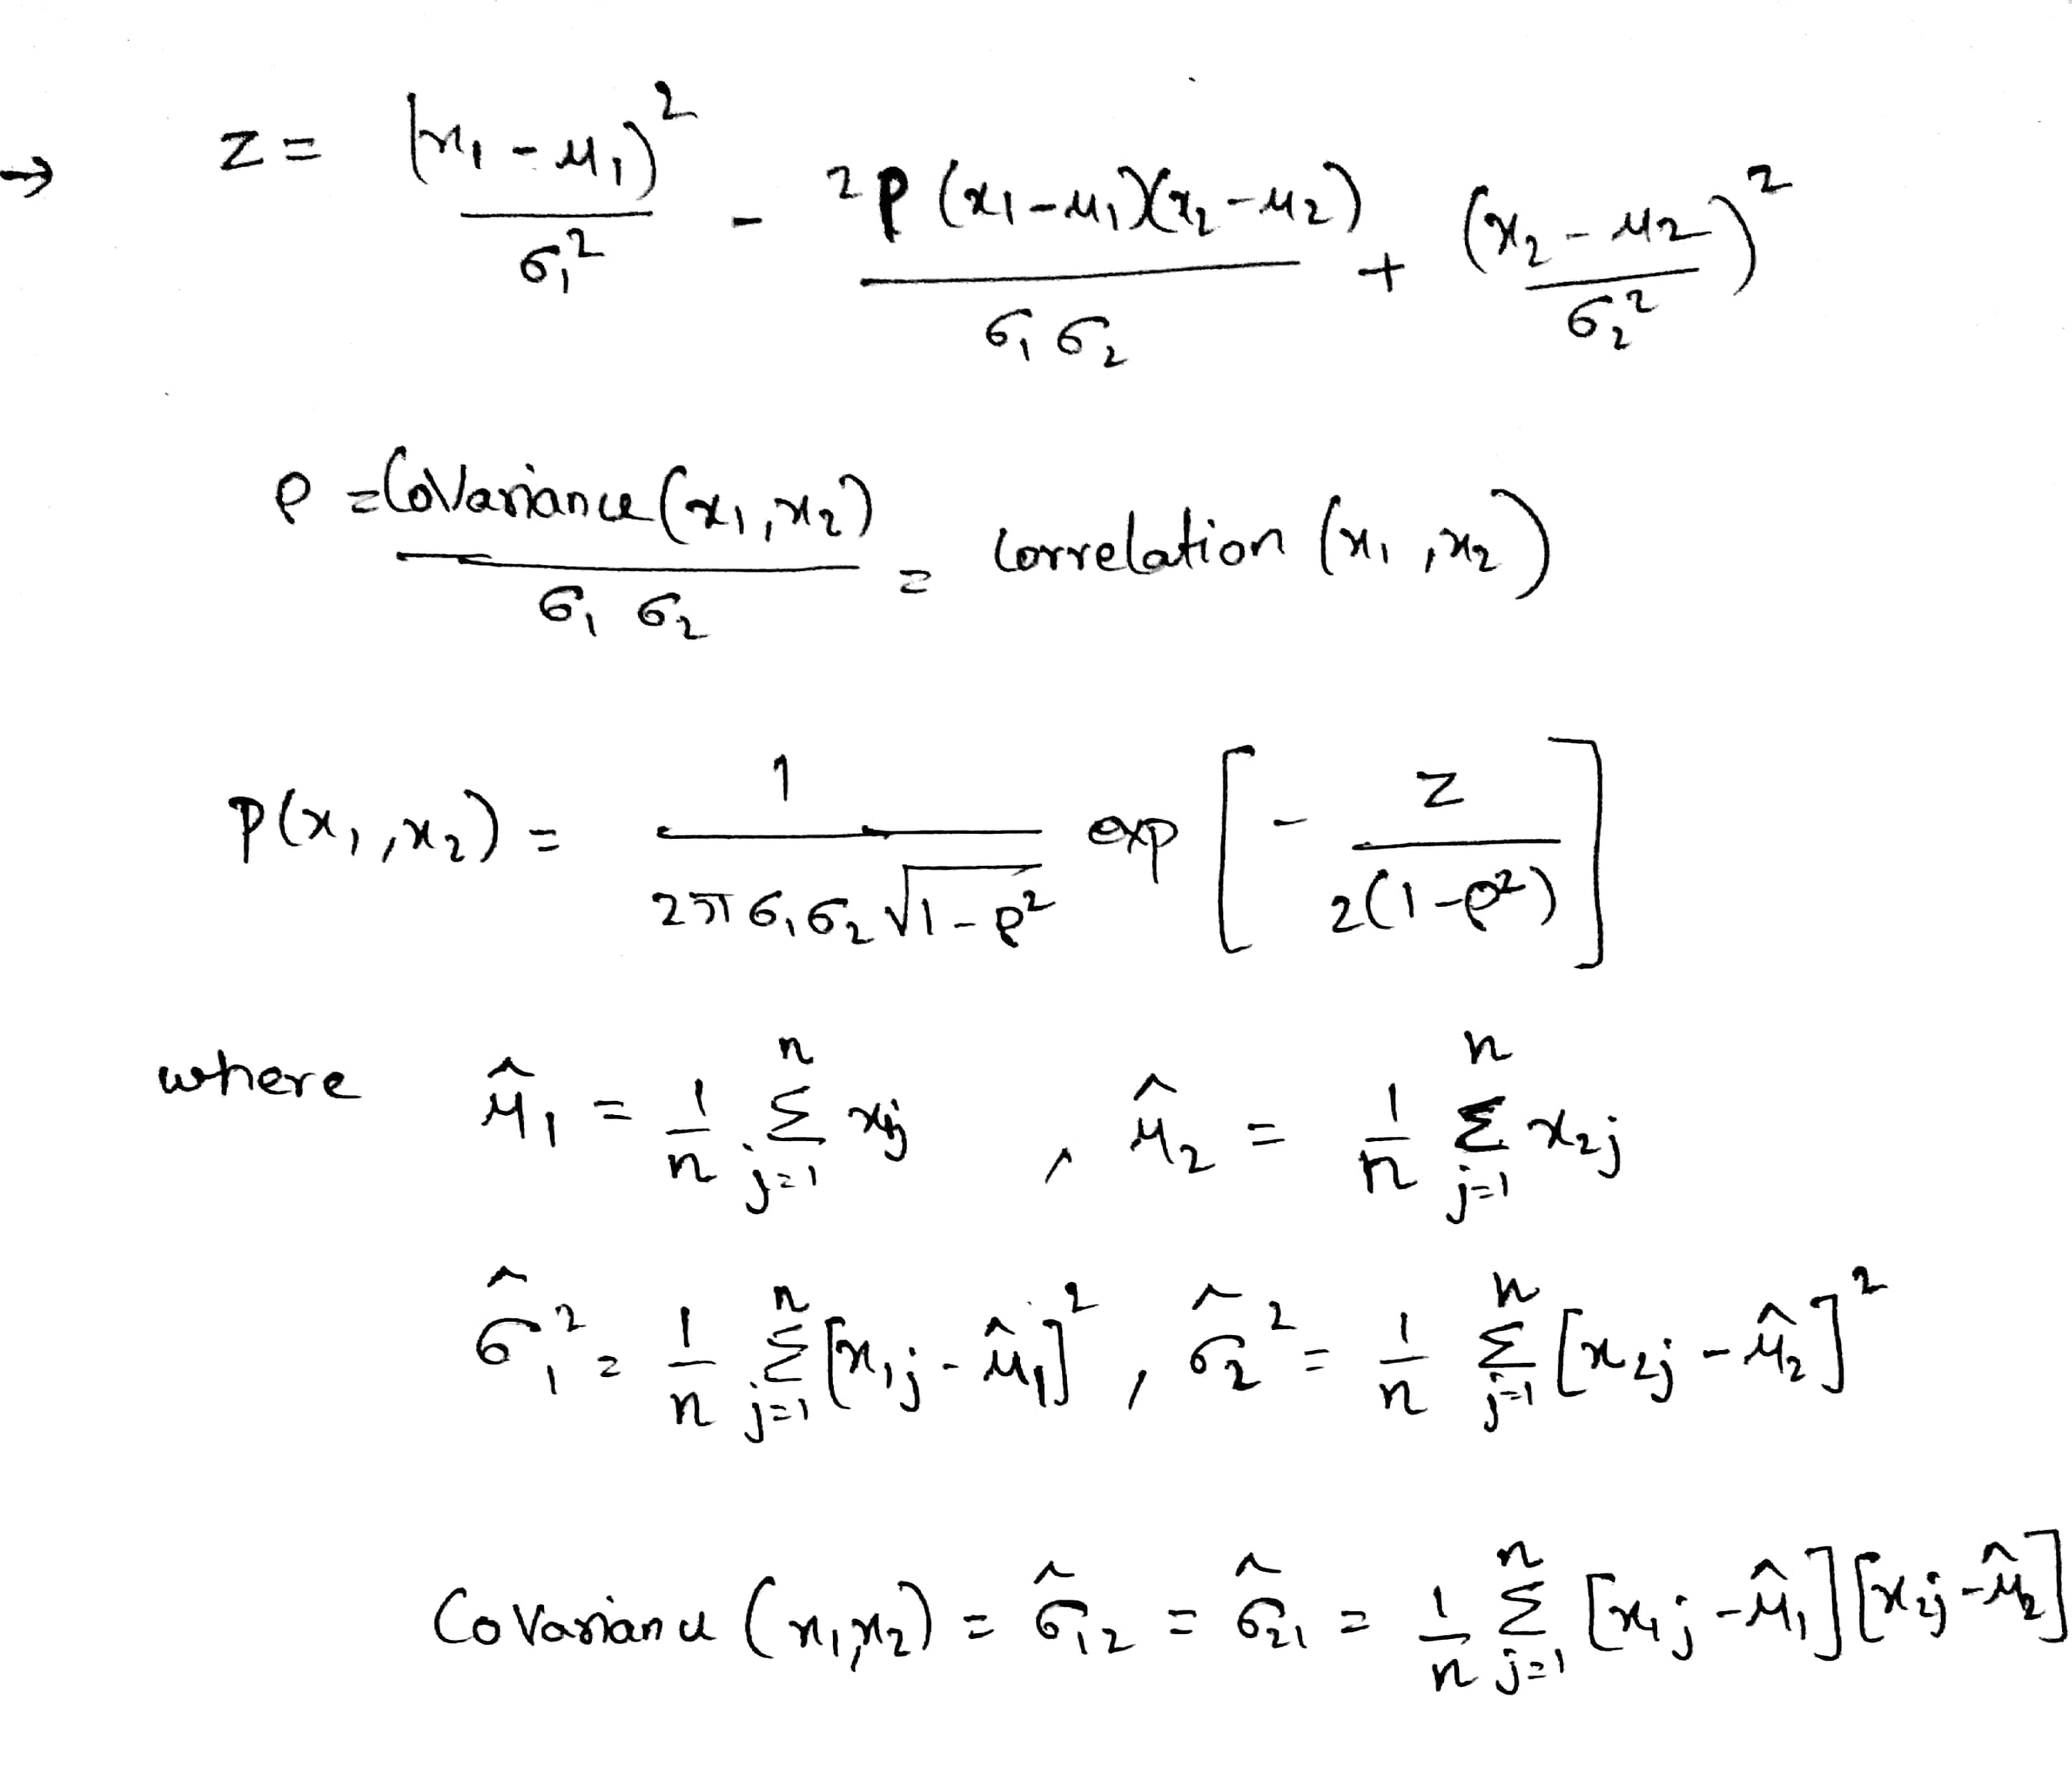 → z = (x₁ - μ₁)² / σ₁² - 2ρ(x₁-μ₁)(x₂-μ₂) / σ₁σ₂ + (x₂ - μ₂)² / σ₂²
ρ = Covariance(x₁,x₂) / σ₁σ₂ = correlation (x₁,x₂)
P(x₁,x₂) = 1 / 2πσ₁σ₂√1-ρ² exp [ - z / 2(1-ρ²) ]
where μ̂₁ = 1/n Σⁿⱼ₌₁ x₁ⱼ , μ̂₂ = 1/n Σⁿⱼ₌₁ x₂ⱼ
σ̂₁² = 1/n Σⁿⱼ₌₁ [x₁ⱼ - μ̂₁]² , σ̂₂² = 1/n Σⁿⱼ₌₁ [x₂ⱼ - μ̂₂]²
Covariance (x₁,x₂) = σ̂₁₂ = σ̂₂₁ = 1/n Σⁿⱼ₌₁ [x₁ⱼ - μ̂₁][x₂ⱼ - μ̂₂]